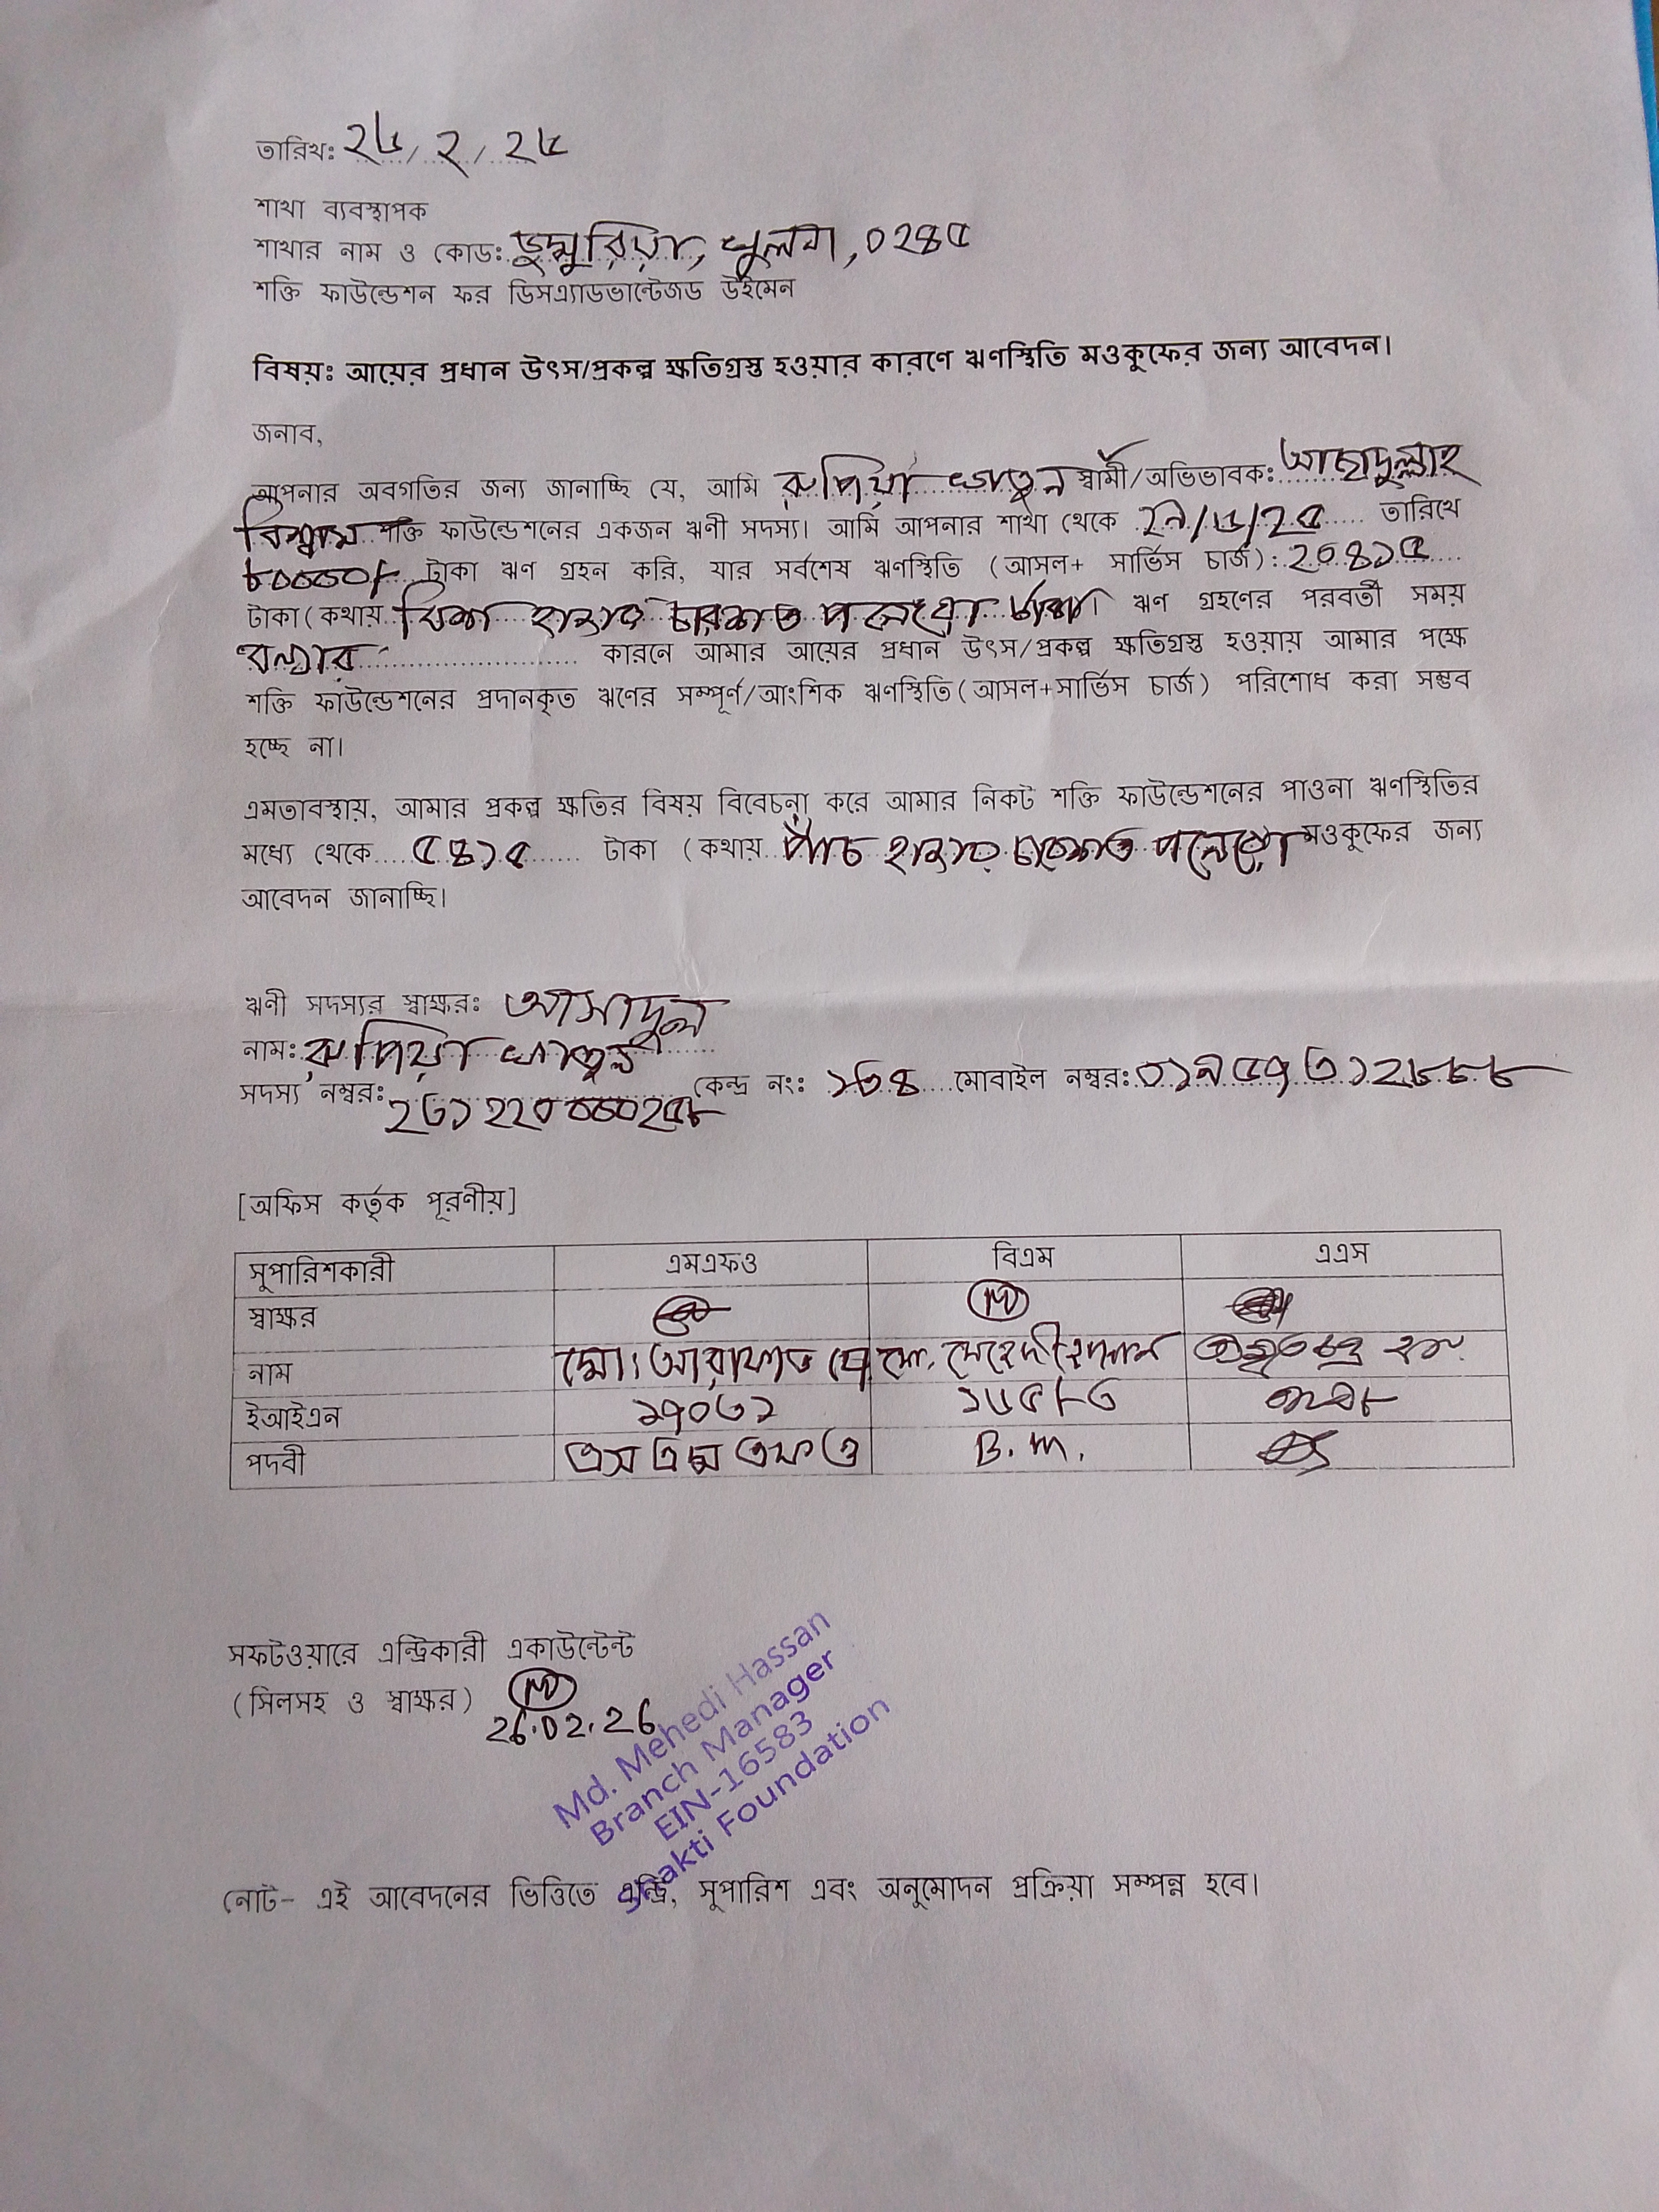 তারিখঃ ২৬/২/২৬
শাখা ব্যবস্থাপক
শাখার নাম ও কোডঃ ডুমুরিয়া, খুলনা, ০২৪৫
শক্তি ফাউন্ডেশন ফর ডিসএ্যাডভান্টেজড উইমেন
বিষয়ঃ আয়ের প্রধান উৎস/প্রকল্প ক্ষতিগ্রস্ত হওয়ার কারণে ঋণস্থিতি মওকুফের জন্য আবেদন।
জনাব,
আপনার অবগতির জন্য জানাচ্ছি যে, আমি রুপিয়া খাতুন স্বামী/অভিভাবকঃ আছাদুল্লাহ
বিশ্বাস শক্তি ফাউন্ডেশনের একজন ঋণী সদস্য। আমি আপনার শাখা থেকে ২৯/৬/২৫ তারিখে
৮০০০০/- টাকা ঋণ গ্রহন করি, যার সর্বশেষ ঋণস্থিতি (আসল+ সার্ভিস চার্জ): ২০৪১৫
টাকা (কথায় বিশ হাজার চারশত পনেরো টাকা। ঋণ গ্রহণের পরবর্তী সময়
বন্যার কারনে আমার আয়ের প্রধান উৎস/প্রকল্প ক্ষতিগ্রস্ত হওয়ায় আমার পক্ষে
শক্তি ফাউন্ডেশনের প্রদানকৃত ঋণের সম্পূর্ণ/আংশিক ঋণস্থিতি (আসল+সার্ভিস চার্জ) পরিশোধ করা সম্ভব
হচ্ছে না।
এমতাবস্থায়, আমার প্রকল্প ক্ষতির বিষয় বিবেচনা করে আমার নিকট শক্তি ফাউন্ডেশনের পাওনা ঋণস্থিতির
মধ্যে থেকে ৫৪১৫ টাকা (কথায় পাঁচ হাজার চারশত পনেরো মওকুফের জন্য
আবেদন জানাচ্ছি।
ঋণী সদস্যর স্বাক্ষরঃ আসাদুল
নামঃ রুপিয়া খাতুন
সদস্য নম্বরঃ কেন্দ্র নংঃ ১৩৪ মোবাইল নম্বরঃ
[অফিস কর্তৃক পূরণীয়]
সুপারিশকারী এমএফও বিএম এএস
স্বাক্ষর
নাম মো। আরাফাত মো. মেহেদী হাসান
ইআইএন ১৭০৩১ ১৬৫৮৩
পদবী এস এম এফ ও B.M.
সফটওয়ারে এন্ট্রিকারী একাউন্টেন্ট
(সিলসহ ও স্বাক্ষর)
26.02.26
Md. Mehedi Hassan
Branch Manager
EIN-16583
Shakti Foundation
নোট- এই আবেদনের ভিত্তিতে এন্ট্রি, সুপারিশ এবং অনুমোদন প্রক্রিয়া সম্পন্ন হবে।